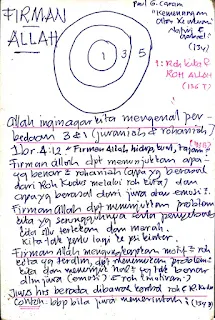 FIRMAN
ALLAH
Paul G. Caram
"Kemenangan
atas Keinginan
Nafsu &
(134)
1 3 5
1: Roh kita &
ROH ALLAH
(136)
Allah ingin agar kita mengenal per
bedaan 3 & 1 (jiwaniah & rohaniah)
Ibr 4:12 "Firman Allah hidup, kuat, tajam
Firman Allah dpt menunjukkan apa
yg benar & rohaniah (apa yg berasal
dari Roh Kudus melalui roh kita) dan
apa yg berasal dari jiwa dan emosi.
Firman Allah dpt menunjukkan problem
kita yg sesungguhnya serta penyebab
kita dlm tertekan dan marah.
Kita tdk perlu lagi ke psikiater.
Firman Allah mengungkapkan motif & roh
kita yg terdlm, dpt menemukan problem
kita dan menemukan hal² yg tdk benar
dlm jiwa (emosi) & roh (naluri)
Jiwa hrs berada dibawah kontrol roh & R. Kudus
Contoh: bbp bila jiwa memerintah: (134)